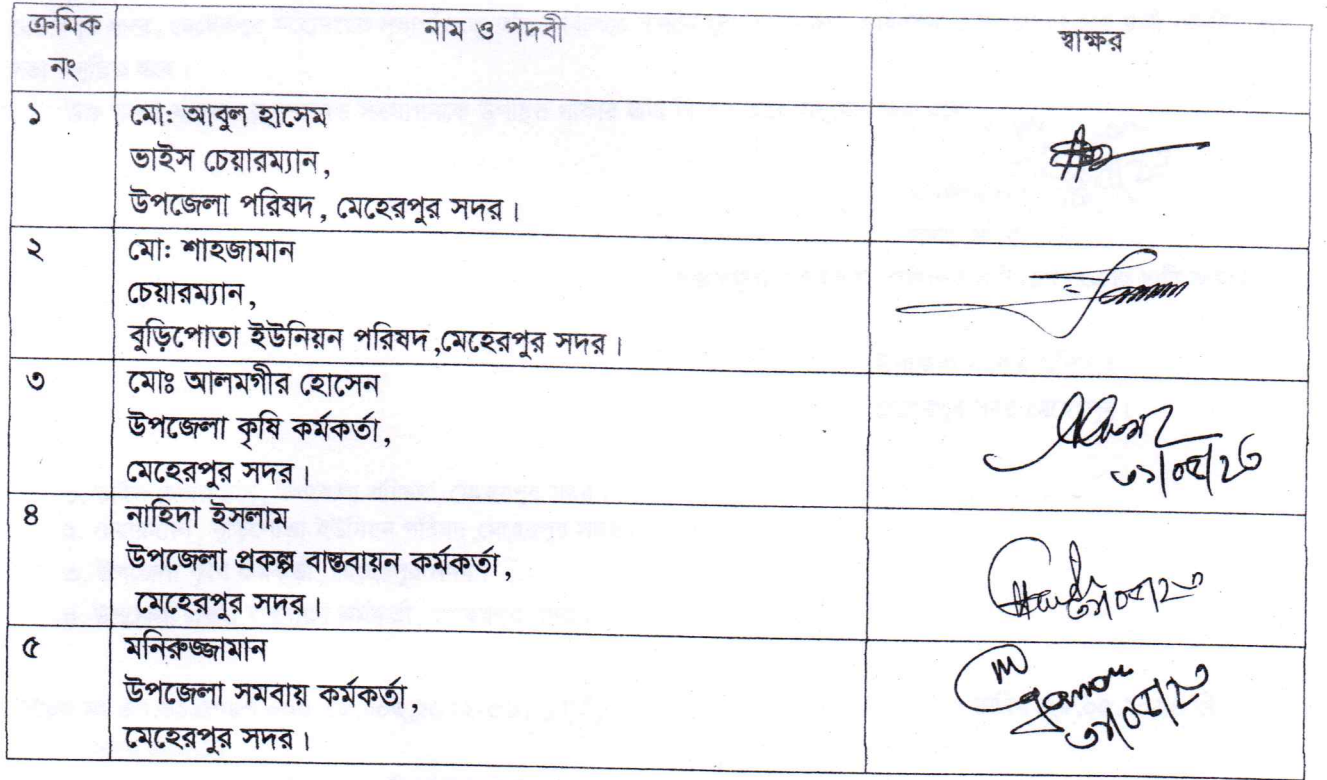 ক্রমিক নং	নাম ও পদবী	স্বাক্ষর
১	মো: আবুল হাসেম
ভাইস চেয়ারম্যান,
উপজেলা পরিষদ, মেহেরপুর সদর।
২	মো: শাহজামান
চেয়ারম্যান,
বুড়িপোতা ইউনিয়ন পরিষদ,মেহেরপুর সদর।
৩	মোঃ আলমগীর হোসেন
উপজেলা কৃষি কর্মকর্তা,
মেহেরপুর সদর।
৪	নাহিদা ইসলাম
উপজেলা প্রকল্প বাস্তবায়ন কর্মকর্তা,
মেহেরপুর সদর।
৫	মনিরুজ্জামান
উপজেলা সমবায় কর্মকর্তা,
মেহেরপুর সদর।